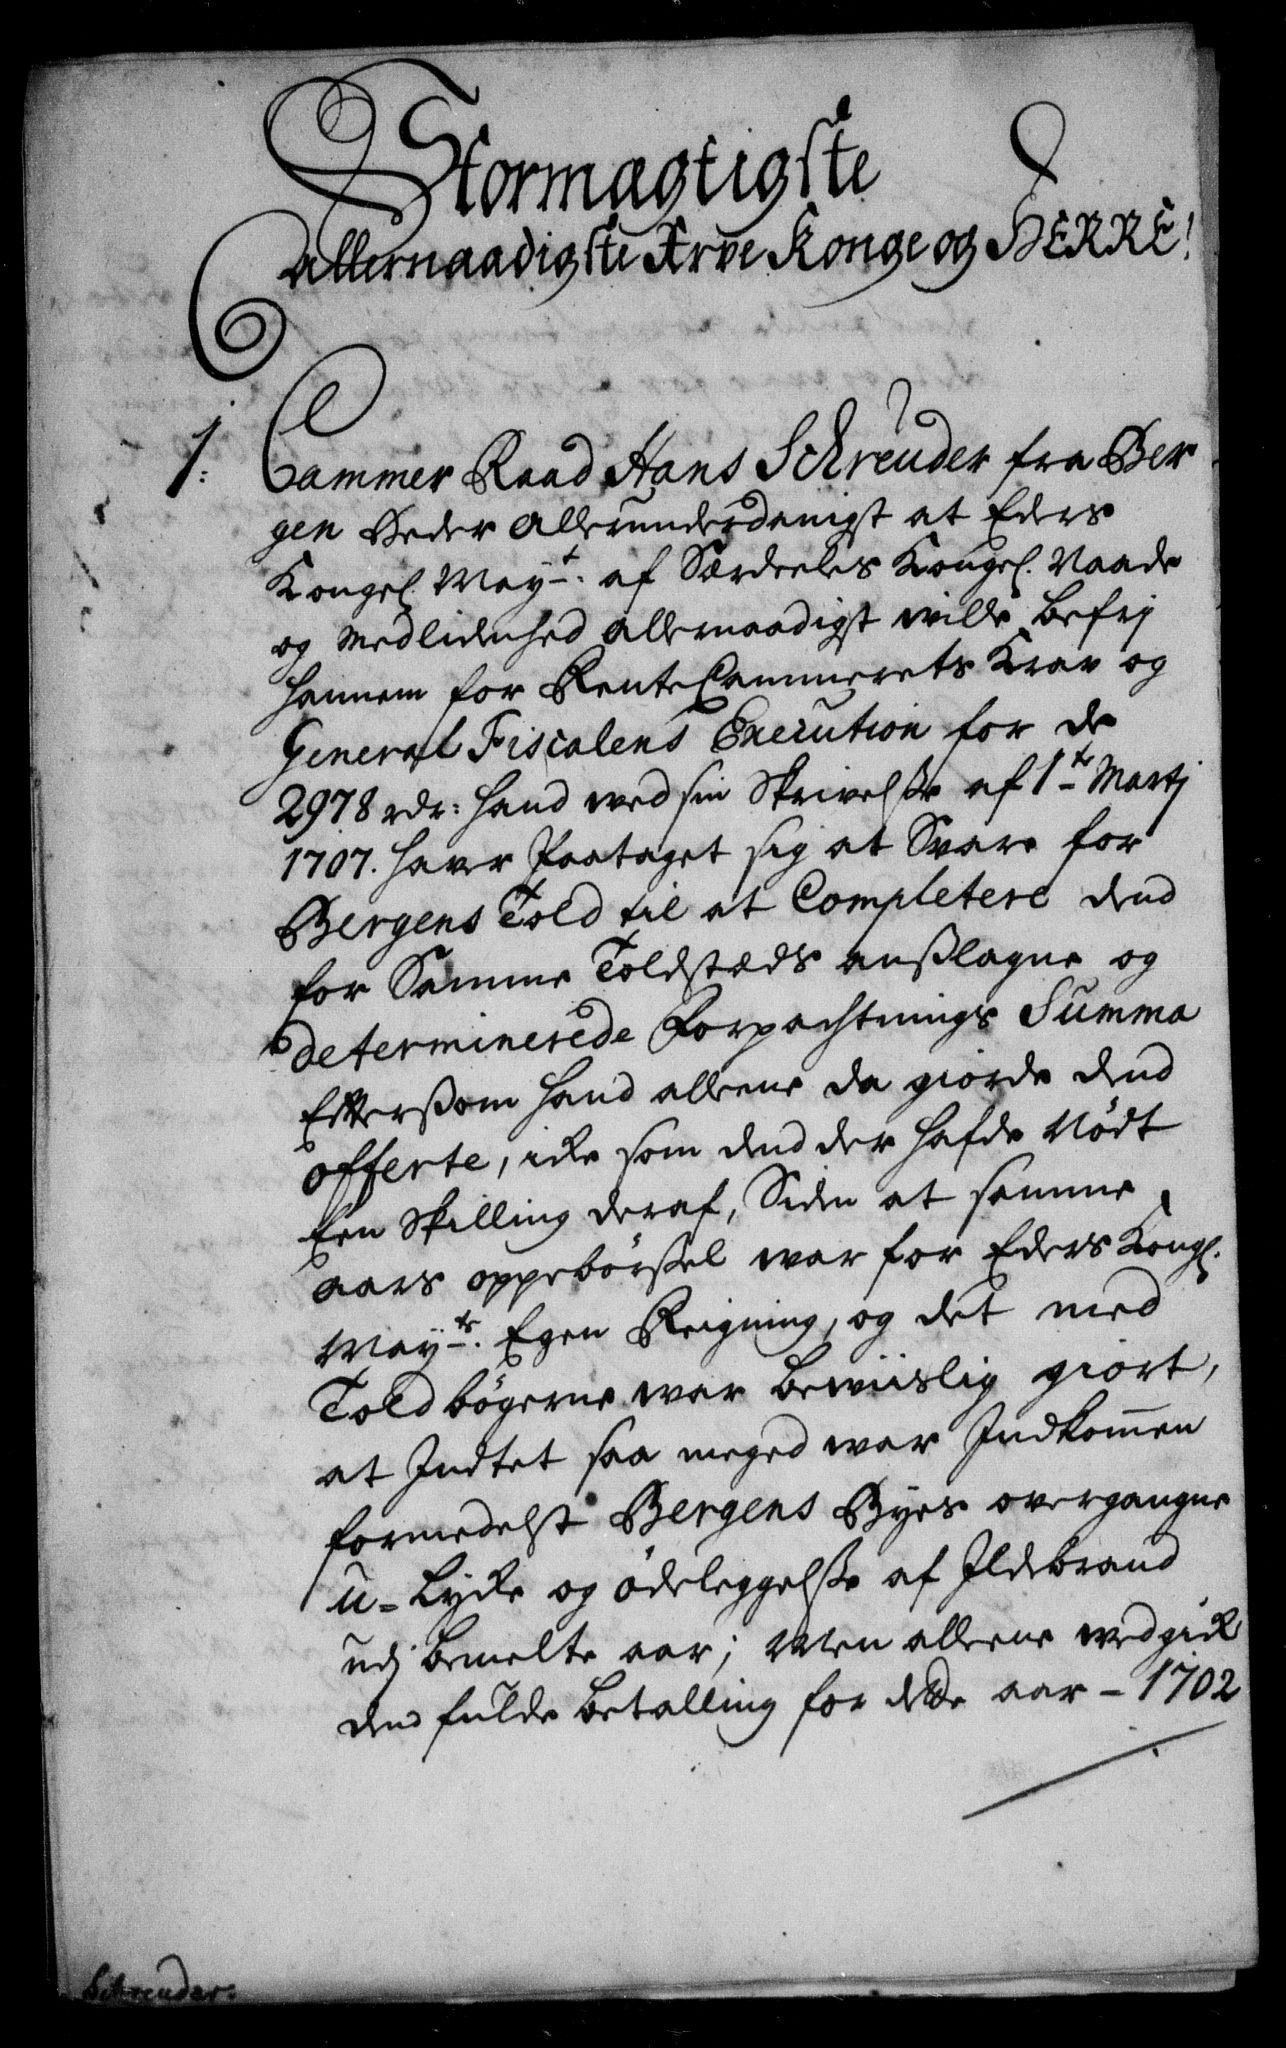 Stormægtigste
Allernaadigste Arve Konge og HERRE!
1: Cammer Raad Hans Schreuder fra Ber
gen Beder allerunderdanigst at Eders
Kongel. Mayt: af Særdeeles Kongel. Naade
og Medlidenhed allernaadigst wille befrj
hannem for RenteCammerets Krav og
General Fiscalens Execution for de
2978 rdr: hand wed sin Skrivelsse af 1te Martj
1707. haver Paataget sig at Svare for
Bergens Told til at Completere dend
for Samme Toldstæds anslagne og
determinerede Forpachtnings Summa
Efterssom hand alleene da giorde dend
offerte, icke som dend der hafde Nødt
Een Skilling deraf, Siden at samme
aars oppebørssel war for Eders Kongl.
Mayts. Egen Reigning, og det med
Toldbøgerne war bewiislig giort,
at Indtet saa meged war Indkom̅en
formedelst Bergens Byes overgangne
U-Lycke og ødeleggelsse af Ildebrand
udj bemelte aar; Men alleene wedgick
dend fulde betalling for dette aar - 1702
Schreuder.